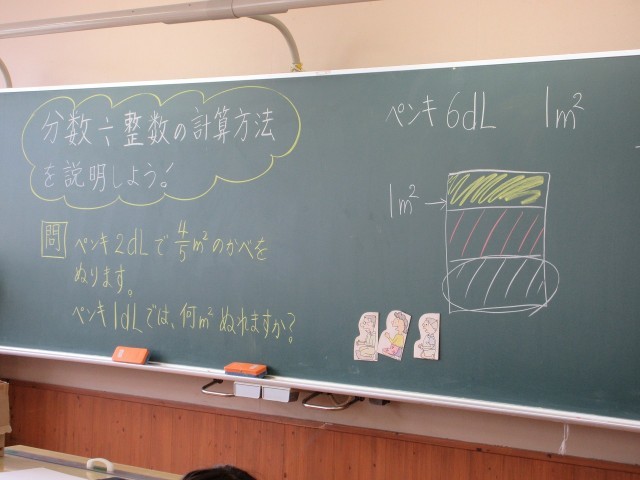 分数÷整数の計算方法
を説明しよう!
問 ペンキ2dLで4/5m²のかべを
ぬります。
ペンキ1dLでは、何m²ぬれますか?
ペンキ6dL 1m²
1m²→